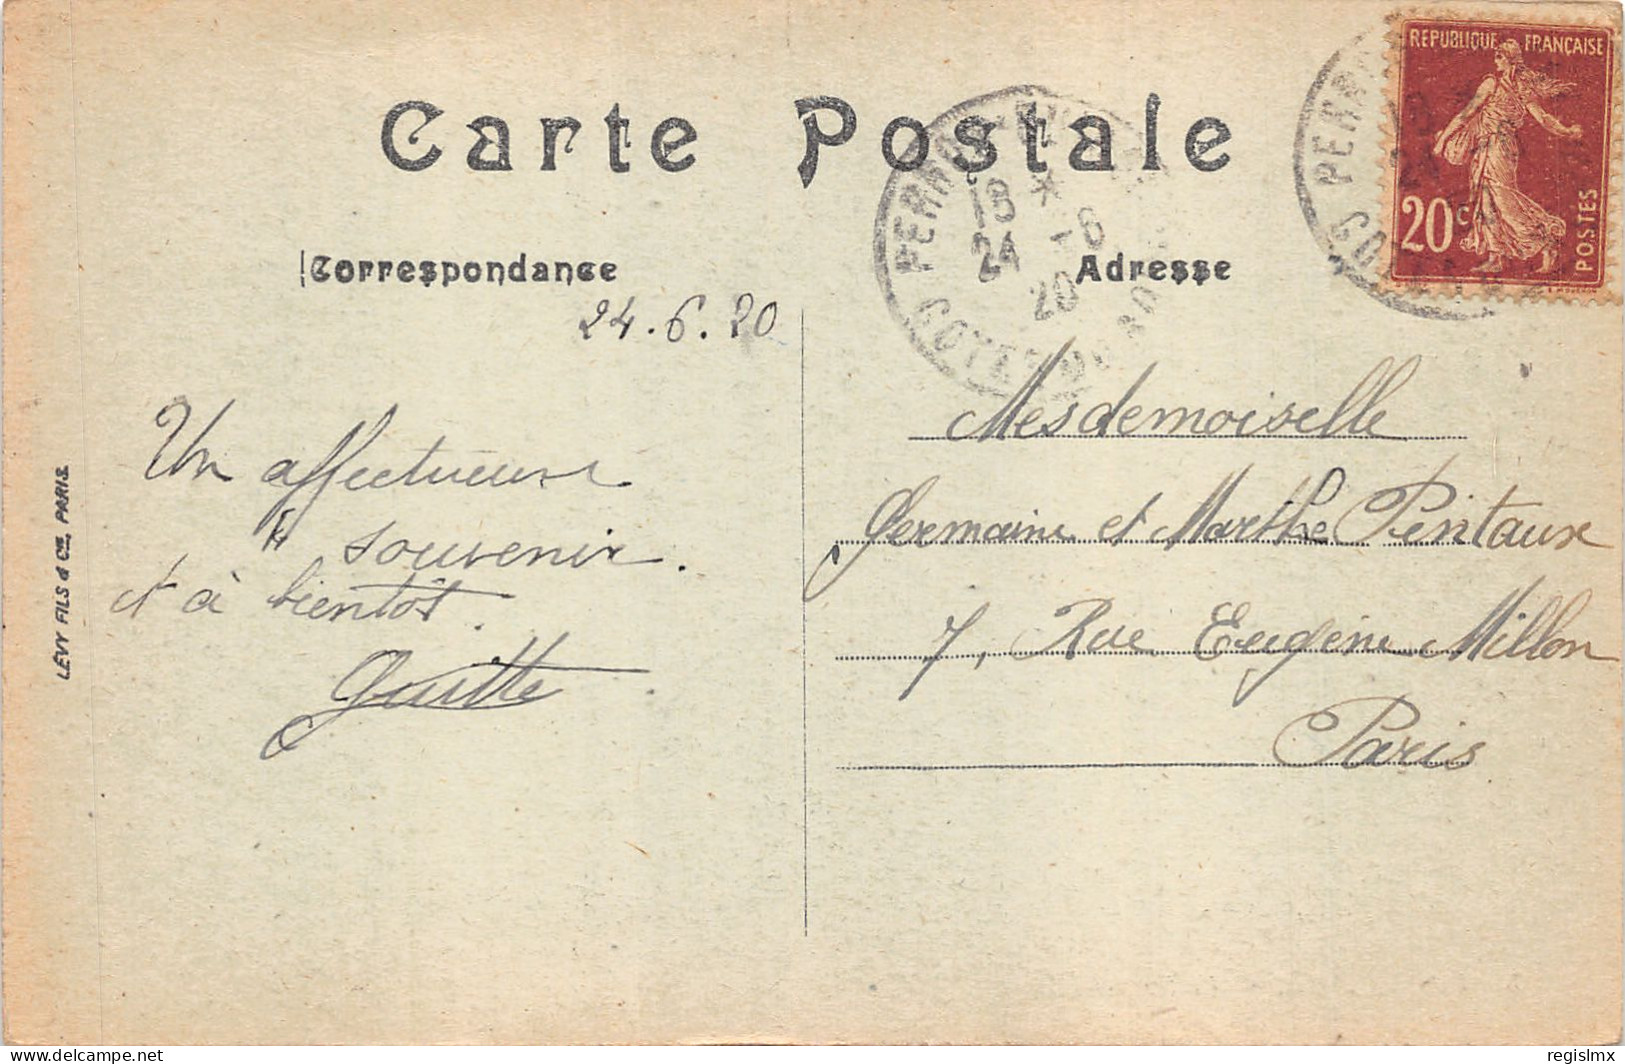 Carte Postale
REPUBLIQUE FRANÇAISE
20c
POSTES
18 *
24 -6
20
Correspondance
Adresse
24.6.20
Un affectueux
souvenir.
et à bientôt.
Mesdemoiselle
Germaine et Marthe Pentaux
7, Rue Eugène Millon
Paris
LÉVY FILS & Cie, PARIS
delcampe.net
regislmx